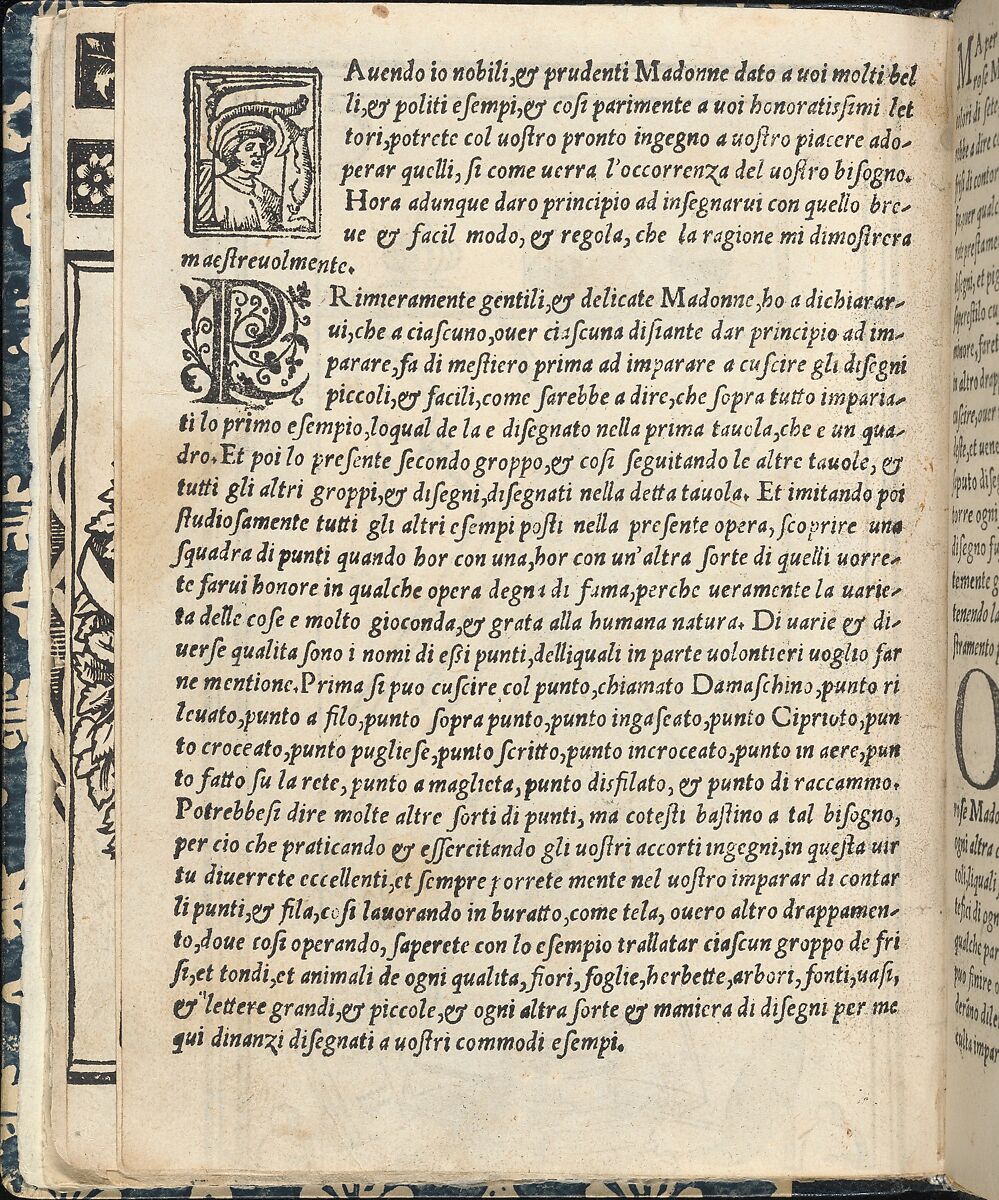 HAuendo io nobili,& prudenti Madonne dato a uoi molti bel
li,& politi esempi,& cosi parimente a uoi honoratissimi let
tori,potrete col uostro pronto ingegno a uostro piacere ado-
perar quelli, si come uerra l'occorrenza del uostro bisogno.
Hora adunque daro principio ad insegnarui con quello bre-
ue & facil modo, & regola, che la ragione mi dimostrera
maestreuolmente.
PRimieramente gentili,& delicate Madonne,ho a dichiarar-
ui,che a ciascuno,ouer ciascuna disiante dar principio ad im-
parare,fa di mestiero prima ad imparare a cuscire gli disegni
piccoli,& facili,come sarebbe a dire,che sopra tutto imparia-
ti lo primo esempio,loqual de la e disegnato nella prima tauola,che e un qua-
dro.Et poi lo presente secondo groppo,& cosi seguitando le altre tauole, &
tutti gli altri groppi,& disegni,disegnati nella detta tauola. Et imitando poi
studiosamente tutti gli altri esempi posti nella presente opera, scoprire una
squadra di punti quando hor con una,hor con un'altra sorte di quelli uorre-
te farui honore in qualche opera degna di fama,perche ueramente la uarie-
ta delle cose e molto gioconda,& grata alla humana natura. Di uarie & di-
uerse qualita sono i nomi di essi punti,delliquali in parte uolontieri uoglio far
ne mentione.Prima si puo cuscire col punto,chiamato Damaschino,punto ri
leuato,punto a filo,punto sopra punto,punto ingaseato,punto Ciprioto,pun
to croceato,punto pugliese,punto scritto,punto incroceato,punto in aere,pun
to fatto su la rete, punto a maglieta, punto disfilato, & punto di raccammo.
Potrebbesi dire molte altre sorti di punti, ma cotesti bastino a tal bisogno,
per cio che praticando & essercitando gli uostri accorti ingegni,in questa uir
tu diuerrete eccellenti,et sempre porrete mente nel uostro imparar di contar
li punti,& fila,cosi lauorando in buratto,come tela, ouero altro drappamen-
to,doue cosi operando, saperete con lo esempio trallatar ciascun groppo de fri
si,et tondi,et animali de ogni qualita, fiori, foglie,herbette,arbori, fonti,uasi,
& lettere grandi,& piccole,& ogni altra sorte & maniera di disegni per me
qui dinanzi disegnati a uostri commodi esempi.